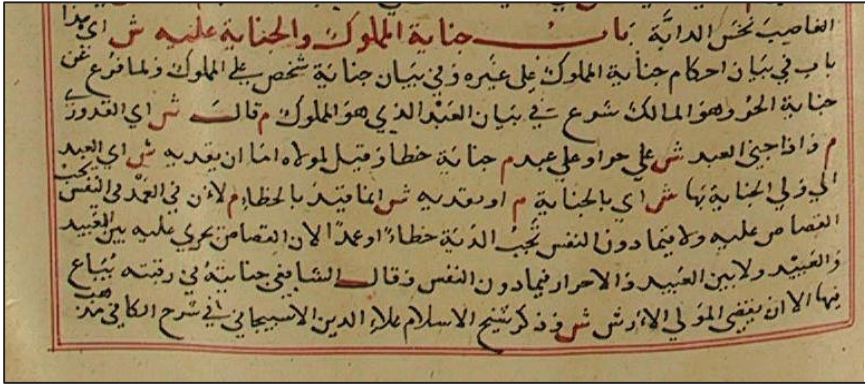 الغاصب نخس الدابة باب جناية المملوك والجناية عليه ش اي هذا
باب في بيان احكام جناية المملوك على غيره وفي بيان جناية شخص على المملوك ولما فرغ عن
جناية الحر وهو المالك شرع في بيان العبد الذي هو المملوك م قال ش اي القدوري
م واذا جني العبد ش علي حر او علي عبد م جناية خطا وقيل لمولاه اما ان يفديه ش اي العبد
الي ولي الجناية بها ش اي بالجناية م او يفديه ش انما قيد بالخطاء م لان في العمد في النفس يجب
القصاص عليه ولا فيما دون النفس تجب الدية خطاء او عمدا الا ان القصاص يجري عليه بين العبيد
والعبيد ولا بين العبيد والاحرار فيما دون النفس وقال الشافعي جنايته في رقبته يباع
فيها الا ان يقضي المولي الارش ش وذكر شيخ الاسلام علاء الدين الاسبيجابي في شرح الكافي مذهب